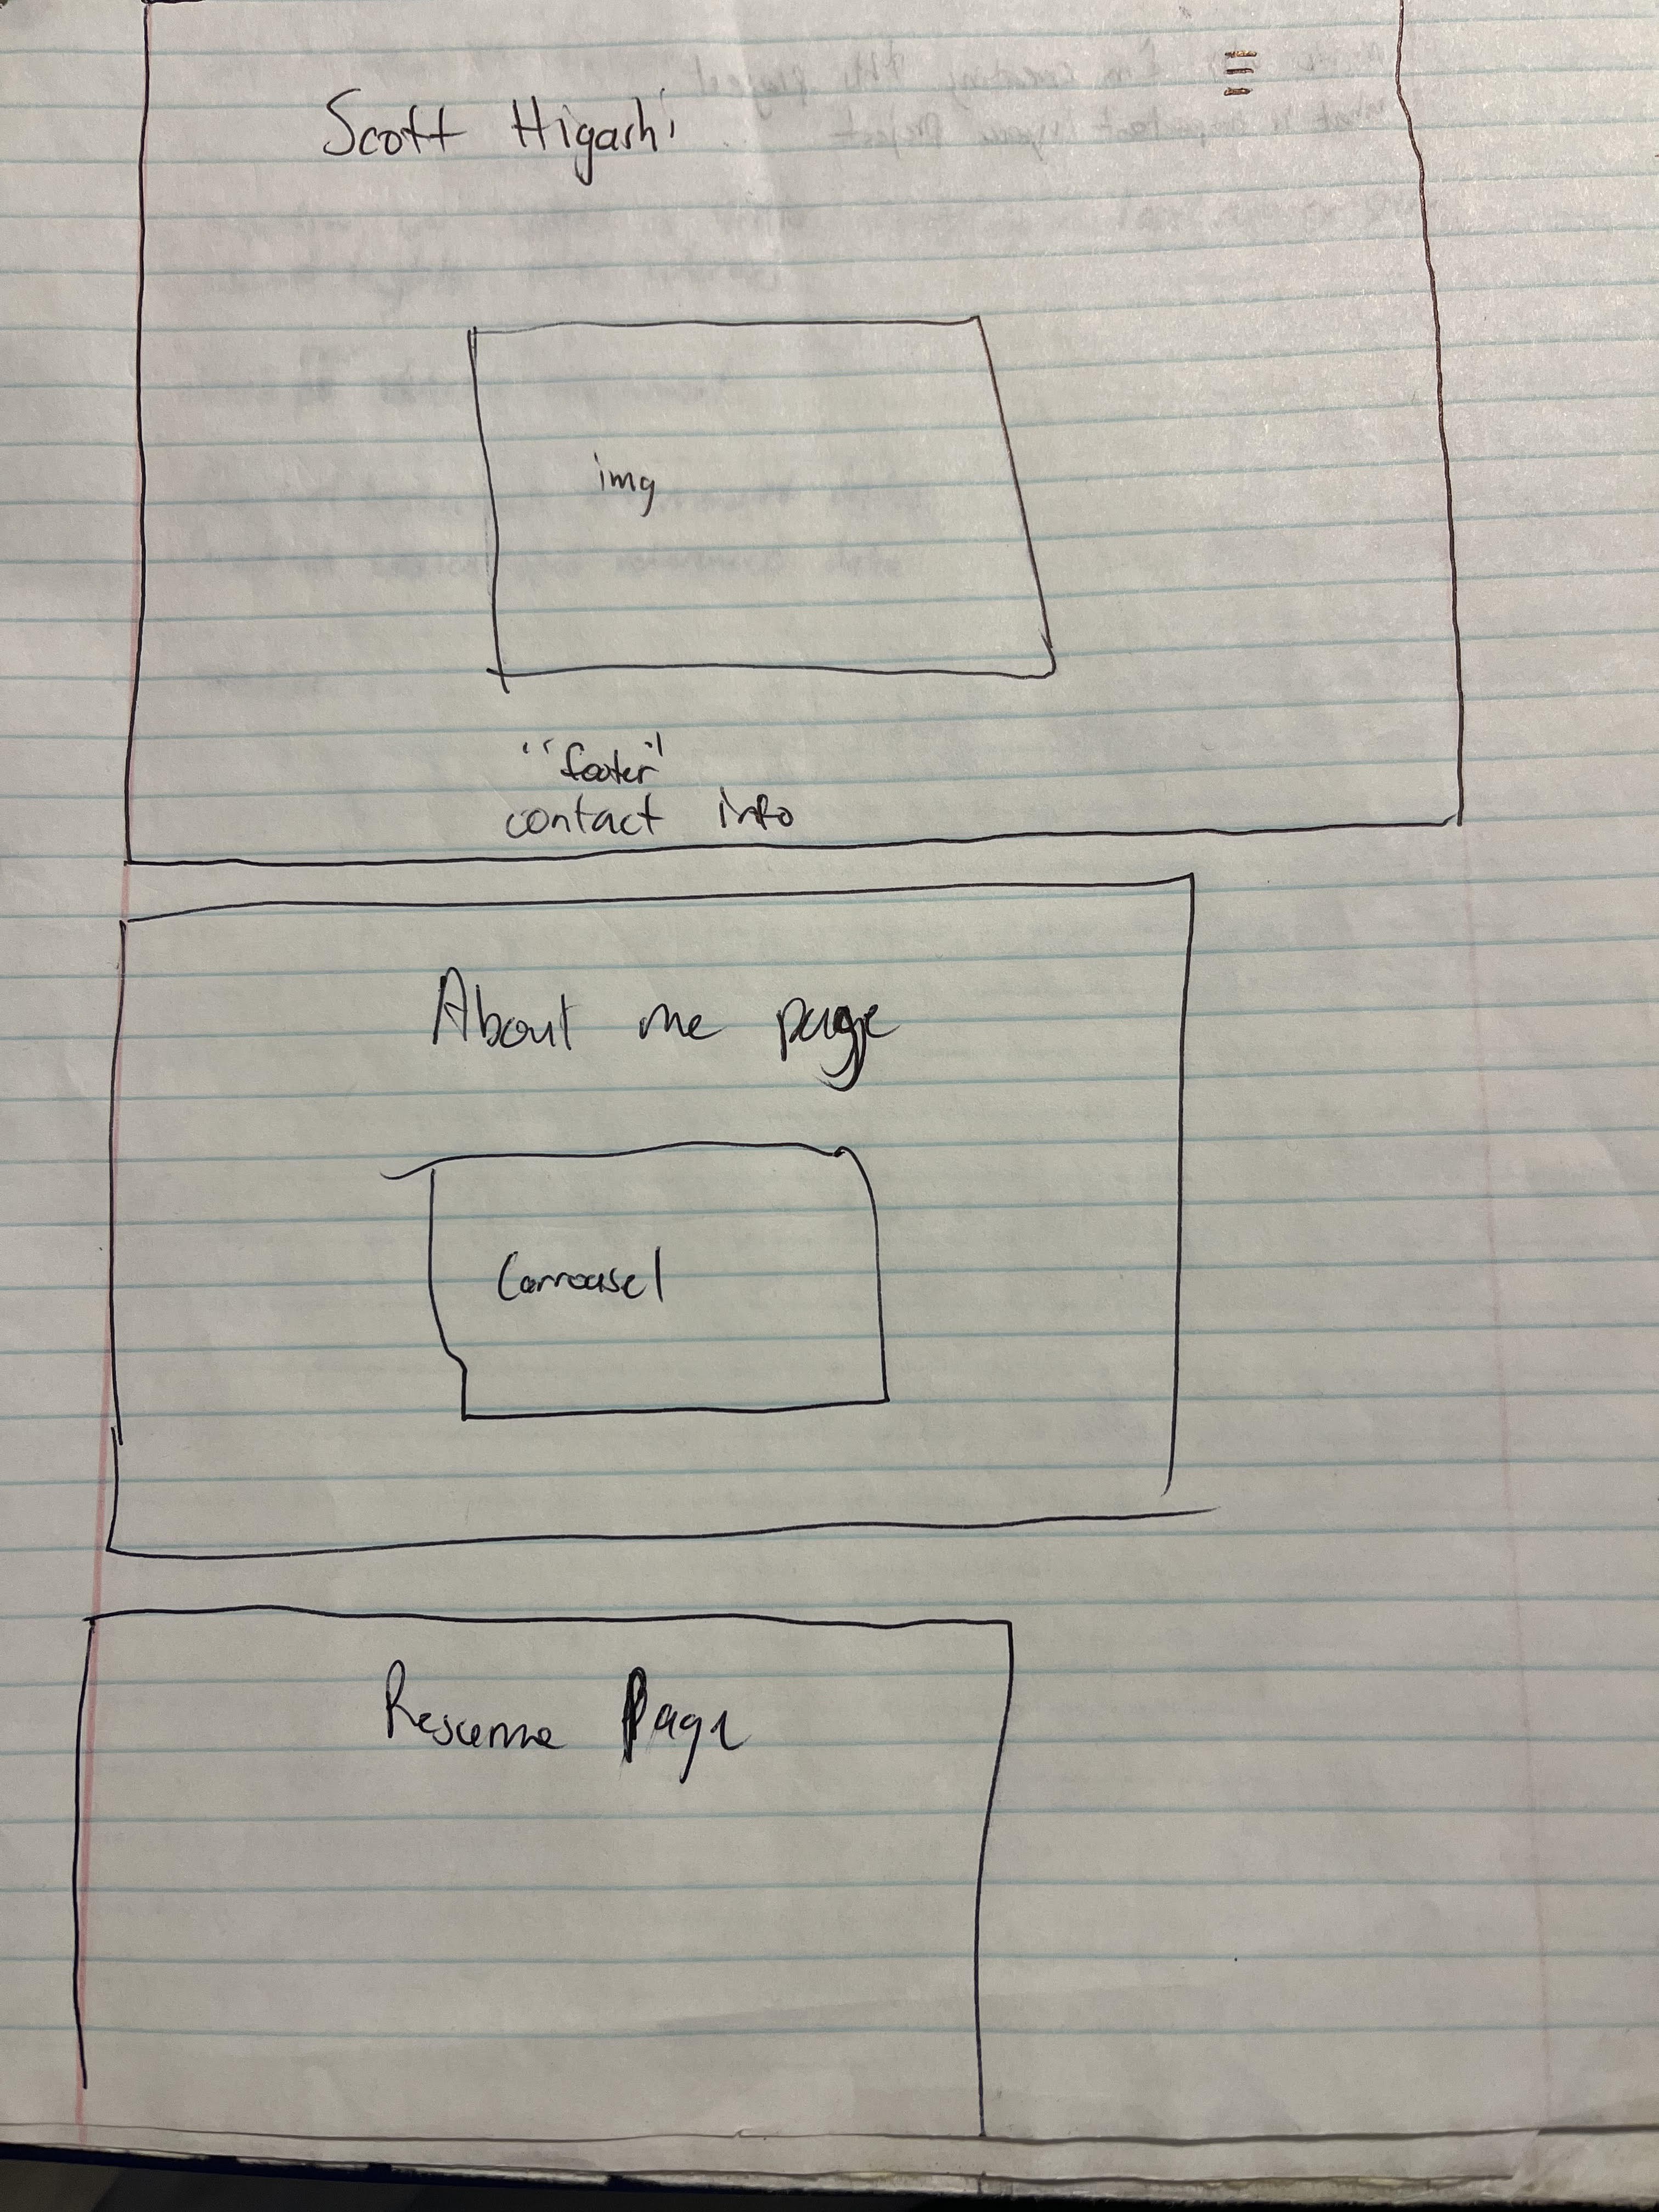 Scott Higashi
img
"footer"
contact info
About me page
Carrousel
Resume Page